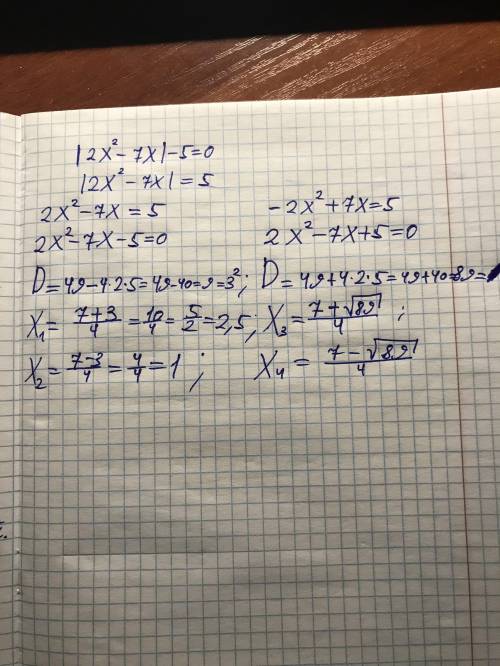 |2x² - 7x| - 5 = 0
|2x² - 7x| = 5
2x² - 7x = 5 -2x² + 7x = 5
2x² - 7x - 5 = 0 2x² - 7x + 5 = 0
D = 49 - 4·2·5 = 49 - 40 = 9 = 3²; D = 49 + 4·2·5 = 49 + 40 = 89 =
x₁ = (7+3)/4 = 10/4 = 5/2 = 2,5; x₃ = (7 + √89)/4 ;
x₂ = (7-3)/4 = 4/4 = 1 ; x₄ = (7 - √89)/4